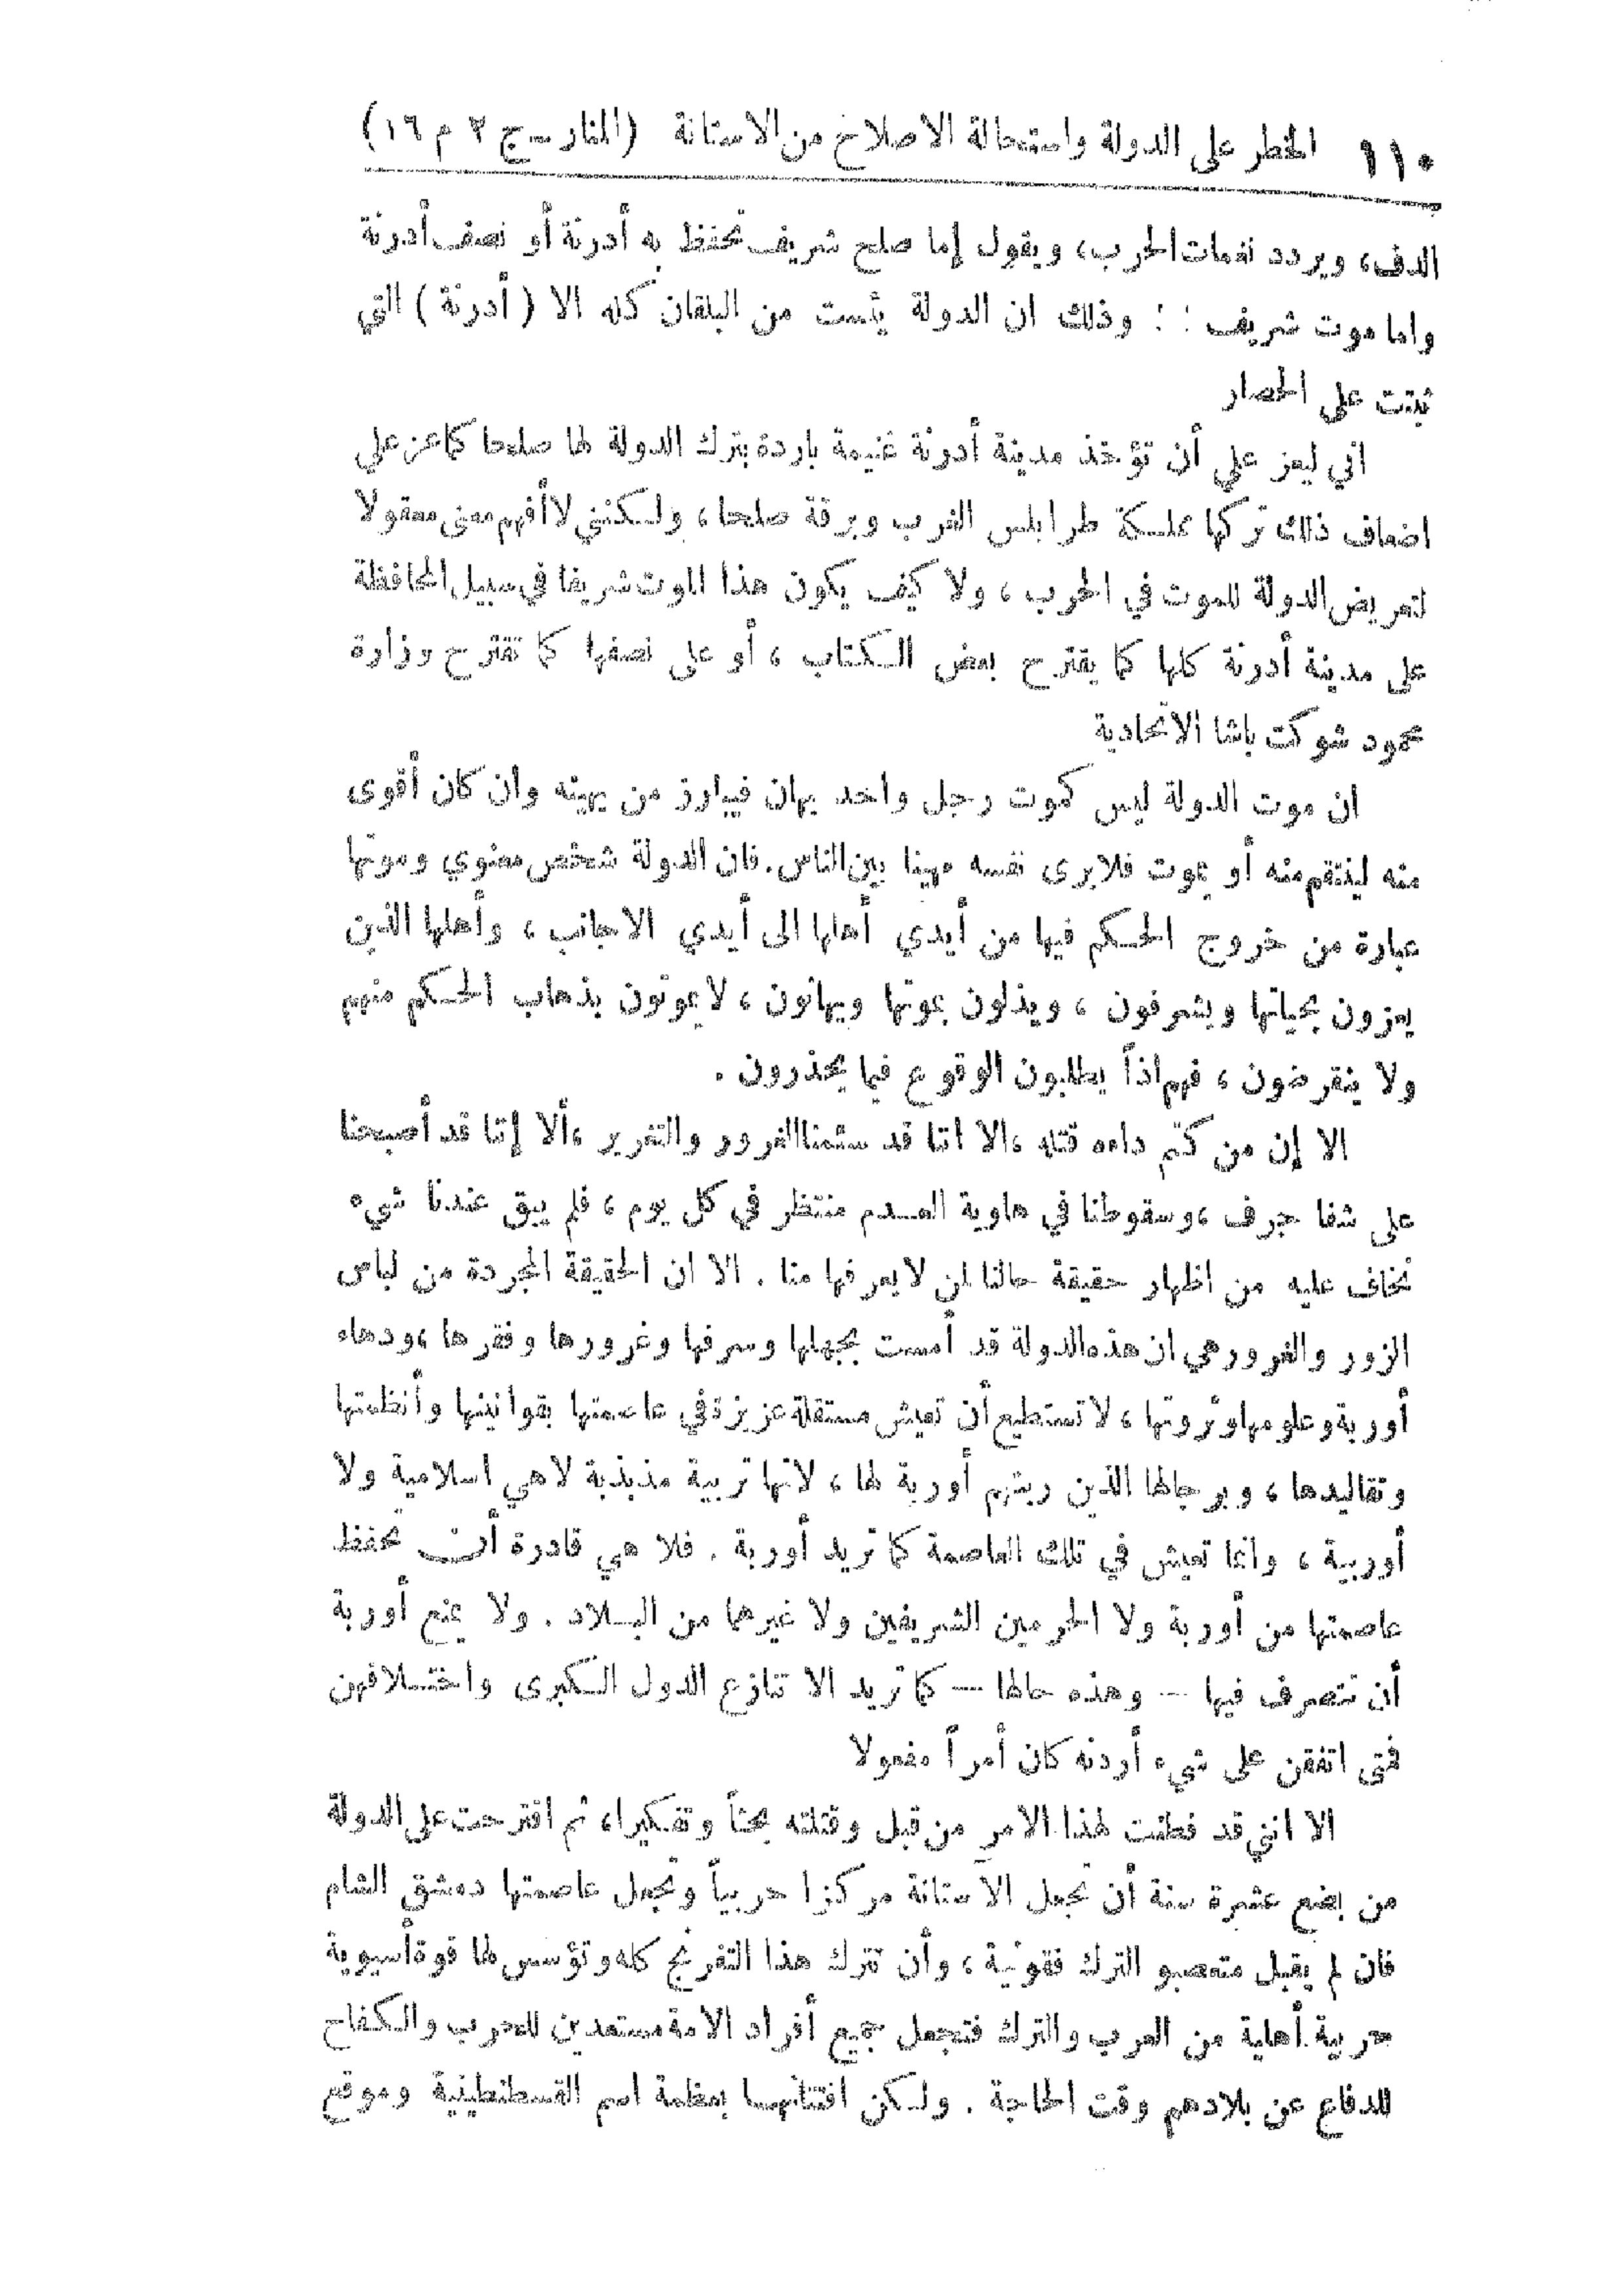 ١١٠ الخطر على الدولة واستحالة الاصلاح من الاستانة (المنار ــ ج ٢ م ١٦)
الدف، ويردد نغمات الحرب، ويقول إما صلح شريف تحفظ به أدرنة أو نصف أدرنة
واما موت شريف ! ! وذلك ان الدولة يئست من البلقان كله الا ( أدرنة ) التي
ثبتت على الحصار
اني ليعز علي أن تؤخذ مدينة أدرنة غنيمة باردة بترك الدولة لها صلحا كما عز علي
اضعاف ذلك تركها مملكة طرابلس الغرب وبرقة صلحا، ولكنني لا أفهم معنى معقولا
لتعريض الدولة للموت في الحرب ، ولا كيف يكون هذا الموت شريفا في سبيل المحافظة
على مدينة أدرنة كلها كما يقترح بعض الكتاب ، أو على نصفها كما تقترح وزارة
محمود شوكت باشا الاتحادية
ان موت الدولة ليس كموت رجل واحد يهان فيبارز من يهينه وان كان أقوى
منه لينتقم منه أو يموت فلا يرى نفسه مهينا بين الناس. فان الدولة شخص معنوي وموتها
عبارة من خروج الحكم فيها من أيدي أهلها الى أيدي الاجانب ، وأهلها الذين
يعزون بحياتها ويشرفون ، ويذلون بموتها ويهانون ، لا يموتون بذهاب الحكم منهم
ولا ينقرضون ، فهم اذاً يطلبون الوقوع فيما يحذرون .
الا إن من كتم داءه قتله ،الا اننا قد سئمنا الغرور والتغرير ،ألا إننا قد أصبحنا
على شفا جرف ،وسقوطنا في هاوية العدم منتظر في كل يوم ، فلم يبق عندنا شيء
نخاف عليه من اظهار حقيقة حالنا لمن لا يعرفها منا . الا ان الحقيقة المجردة من لباس
الزور والغرور هي ان هذه الدولة قد أمست بجهلها وسرفها وغرورها وفقرها ،ودهاء
أوربة وعلومها وثروتها ، لا تستطيع أن تعيش مستقلة عزيزة في عاصمتها بقوانينها وأنظمتها
وتقاليدها ، وبرجالها الذين ربتهم أوربة لها ، لانها تربية مذبذبة لا هي اسلامية ولا
أوربية ، وانما تعيش في تلك العاصمة كما تريد أوربة . فلا هي قادرة أن تحفظ
عاصمتها من أوربة ولا الحرمين الشريفين ولا غيرهما من البلاد . ولا يمنع أوربة
أن تتصرف فيها — وهذه حالها — كما تريد الا تنازع الدول الكبرى واختلافهن
فمتى اتفقن على شيء أردنه كان أمراً مفعولا
الا انني قد فطنت لهذا الامر من قبل وقتلته بحثاً وتفكيرا، ثم اقترحت على الدولة
من بضع عشرة سنة أن تجعل الاستانة مركزا حربياً وتجعل عاصمتها دمشق الشام
فان لم يقبل متعصبو الترك فقونية ، وأن تترك هذا التفرنج كله وتؤسس لها قوة أسيوية
حربية أهلية من العرب والترك فتجعل جميع أفراد الامة مستعدين للحرب والكفاح
للدفاع عن بلادهم وقت الحاجة . ولكن افتتانهم بعظمة اسم القسطنطينية وموقع